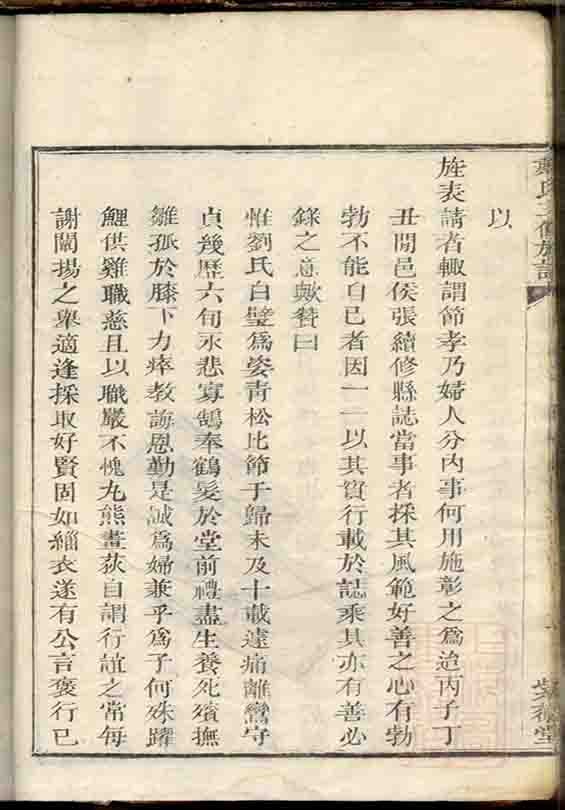 以
旌表請者輙謂節孝乃婦人分內事何用施彰之爲迨丙子丁
丑間邑侯張續修縣誌當事者採其風範好善之心有勃
勃不能自已者因一一以其實行載於誌乘其亦有善必
錄之意歟贊曰
惟劉氏白璧爲姿青松比節于歸未及十載遽痛離鸞守
貞幾歷六旬永悲寡鵠奉鶴髮於堂前禮盡生養死殯撫
雛孤於膝下力瘁教誨恩勤是誠爲婦兼乎爲子何殊躍
鯉供雞職慈且以職嚴不愧丸熊畫荻自謂行誼之常每
謝闡揚之舉適逢採取好賢固如緇衣遂有公言褒行已